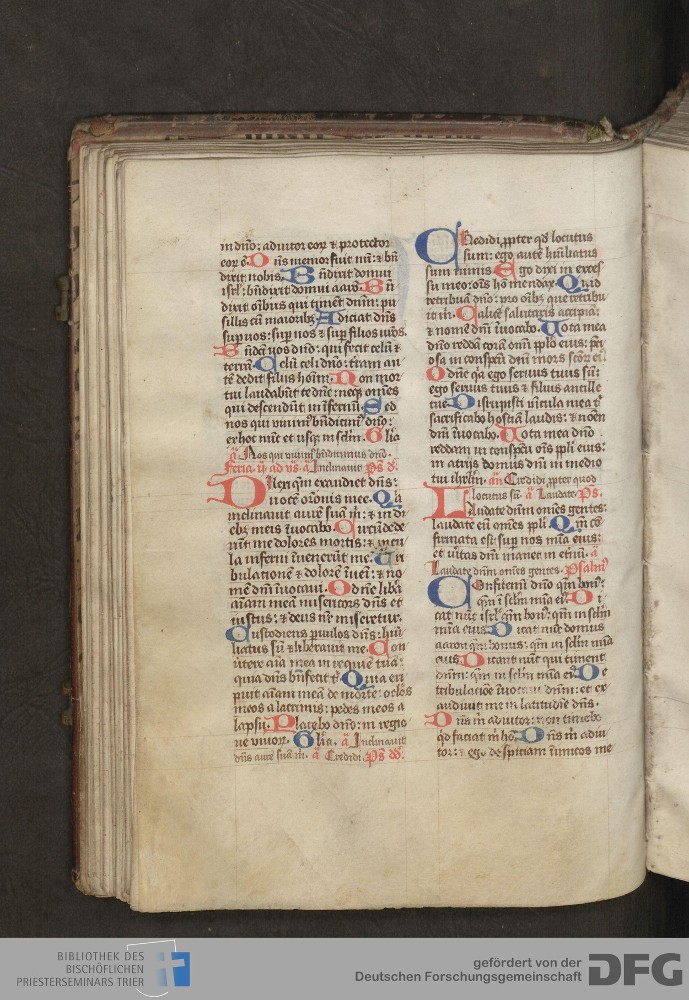 in dño: adiutor eoꝝ ⁊ protector
eoꝝ ē. Dñs memor fuit nr̄i: ⁊ bñ
dixit nobis. Bñdixit domui
isrl̄: bñdixit domui aaro. Bñ
dixit oīb⁹ qui timēt dñm: pu
sillis cū maiorib⁹. Adiciat dñs
sup vos: sup vos ⁊ sup filios vr̄os.
Bñdc̄i vos dño: qui fecit celū ⁊
terrā. Celū celi dño: terram au
tē dedit filiis hoīm. Non mor
tui laudabūt te dñe: neqꝫ om̄es
qui descendūt in īfernū. Sed
nos qui viuim⁹ bñdicim⁹ dño:
ex hoc nūc et usqꝫ in sclm̄. Glīa
ā Nos qui viuim⁹ bñdicimus dño.
Feria ij ad vs̄ ā Inclinauit Ps̄ d.
Dilexi qm̄ exaudiet dñs:
vocē oronis mee. Qīa
inclinauit aurē suā m̄: ⁊ in di
ebꝫ meis īuocabo. Circūdede
rūt me dolores mortis: ⁊ pericu
la inferni īuenerūt me. Tri
bulationē ⁊ dolorē īueī: ⁊ no
mē dnī īuocaui. O dñe libera
aīam meā misericors dñs et
iustus: ⁊ deus nr̄ miseretur.
Custodiens ꝑuulos dñs: hūi
liatus sū ⁊ liberauit me. Con
uertere aīa mea in requiē tuā:
quia dñs bñfecit t̄. Quia eri
puit aīam meā de morte: oclōs
meos a lacrimis: pedes meos a
lapsu. Placebo dño: in regio
ne viuor. Glīa. ā Inclinauit
dñs aurē suā m̄. ā Credidi. Ps̄ dd.
Credidi ꝓpter qd̄ locutus
sum: ego autē humiliatus
sum nimis. Ego dixi in exces
su meo: oīs hō mendax. Quid
retribuā dño: pro oībꝫ que retribu
it m̄. Calicē salutaris accipiā:
⁊ nomē dnī īuocabo. Vota mea
dño reddā corā om̄i pplō eius: pci
osa in conspcū dnī mors scōꝝ ei⁹
O dñe q̄a ego seruus tuus sū:
ego seruus tuus ⁊ filius ancille
tue. Dirupisti vīcula mea t̄
sacrificabo hostiā laudis: ⁊ noēn
dnī īuocabo. Vota mea dño
reddam in conspcū oīs pplī eius:
in atrijs domus dnī in medio
tui ihrlm̄. añ Credidi ꝓpter quod
locutus sū. ā Laudate. Ps̄.
Laudate dñm om̄es gentes:
laudate eū om̄es pplī. Qm̄ cō
firmata est sup nos mīa eius:
et v̄itas dnī manet in etnū. ā
Laudate dñm om̄es gentes. Psalm⁹
Confitemī dño qm̄ bon⁹:
qm̄ ī sclm̄ mīa ei⁹. Di
cat nūc isrl̄ qm̄ bon⁹: qm̄ in sclm̄
mīa eius. Dicat nūc domus
aaron qm̄ bonus: qm̄ in sclm̄ mīa
eius. Dicant nūc qui timent
dñm: qm̄ in sclm̄ mīa ei⁹. De
tribulacōe īuocaui dñm: et ex
audiuit me in latitudīe dñs.
Dñs m̄ adiutor: non timebo
qd̄ faciat m̄ hō. Dñs m̄ adiu
tor: ⁊ ego despiciam īimicos me
BIBLIOTHEK DES
BISCHÖFLICHEN
PRIESTERSEMINARS TRIER
gefördert von der
Deutschen Forschungsgemeinschaft
DFG